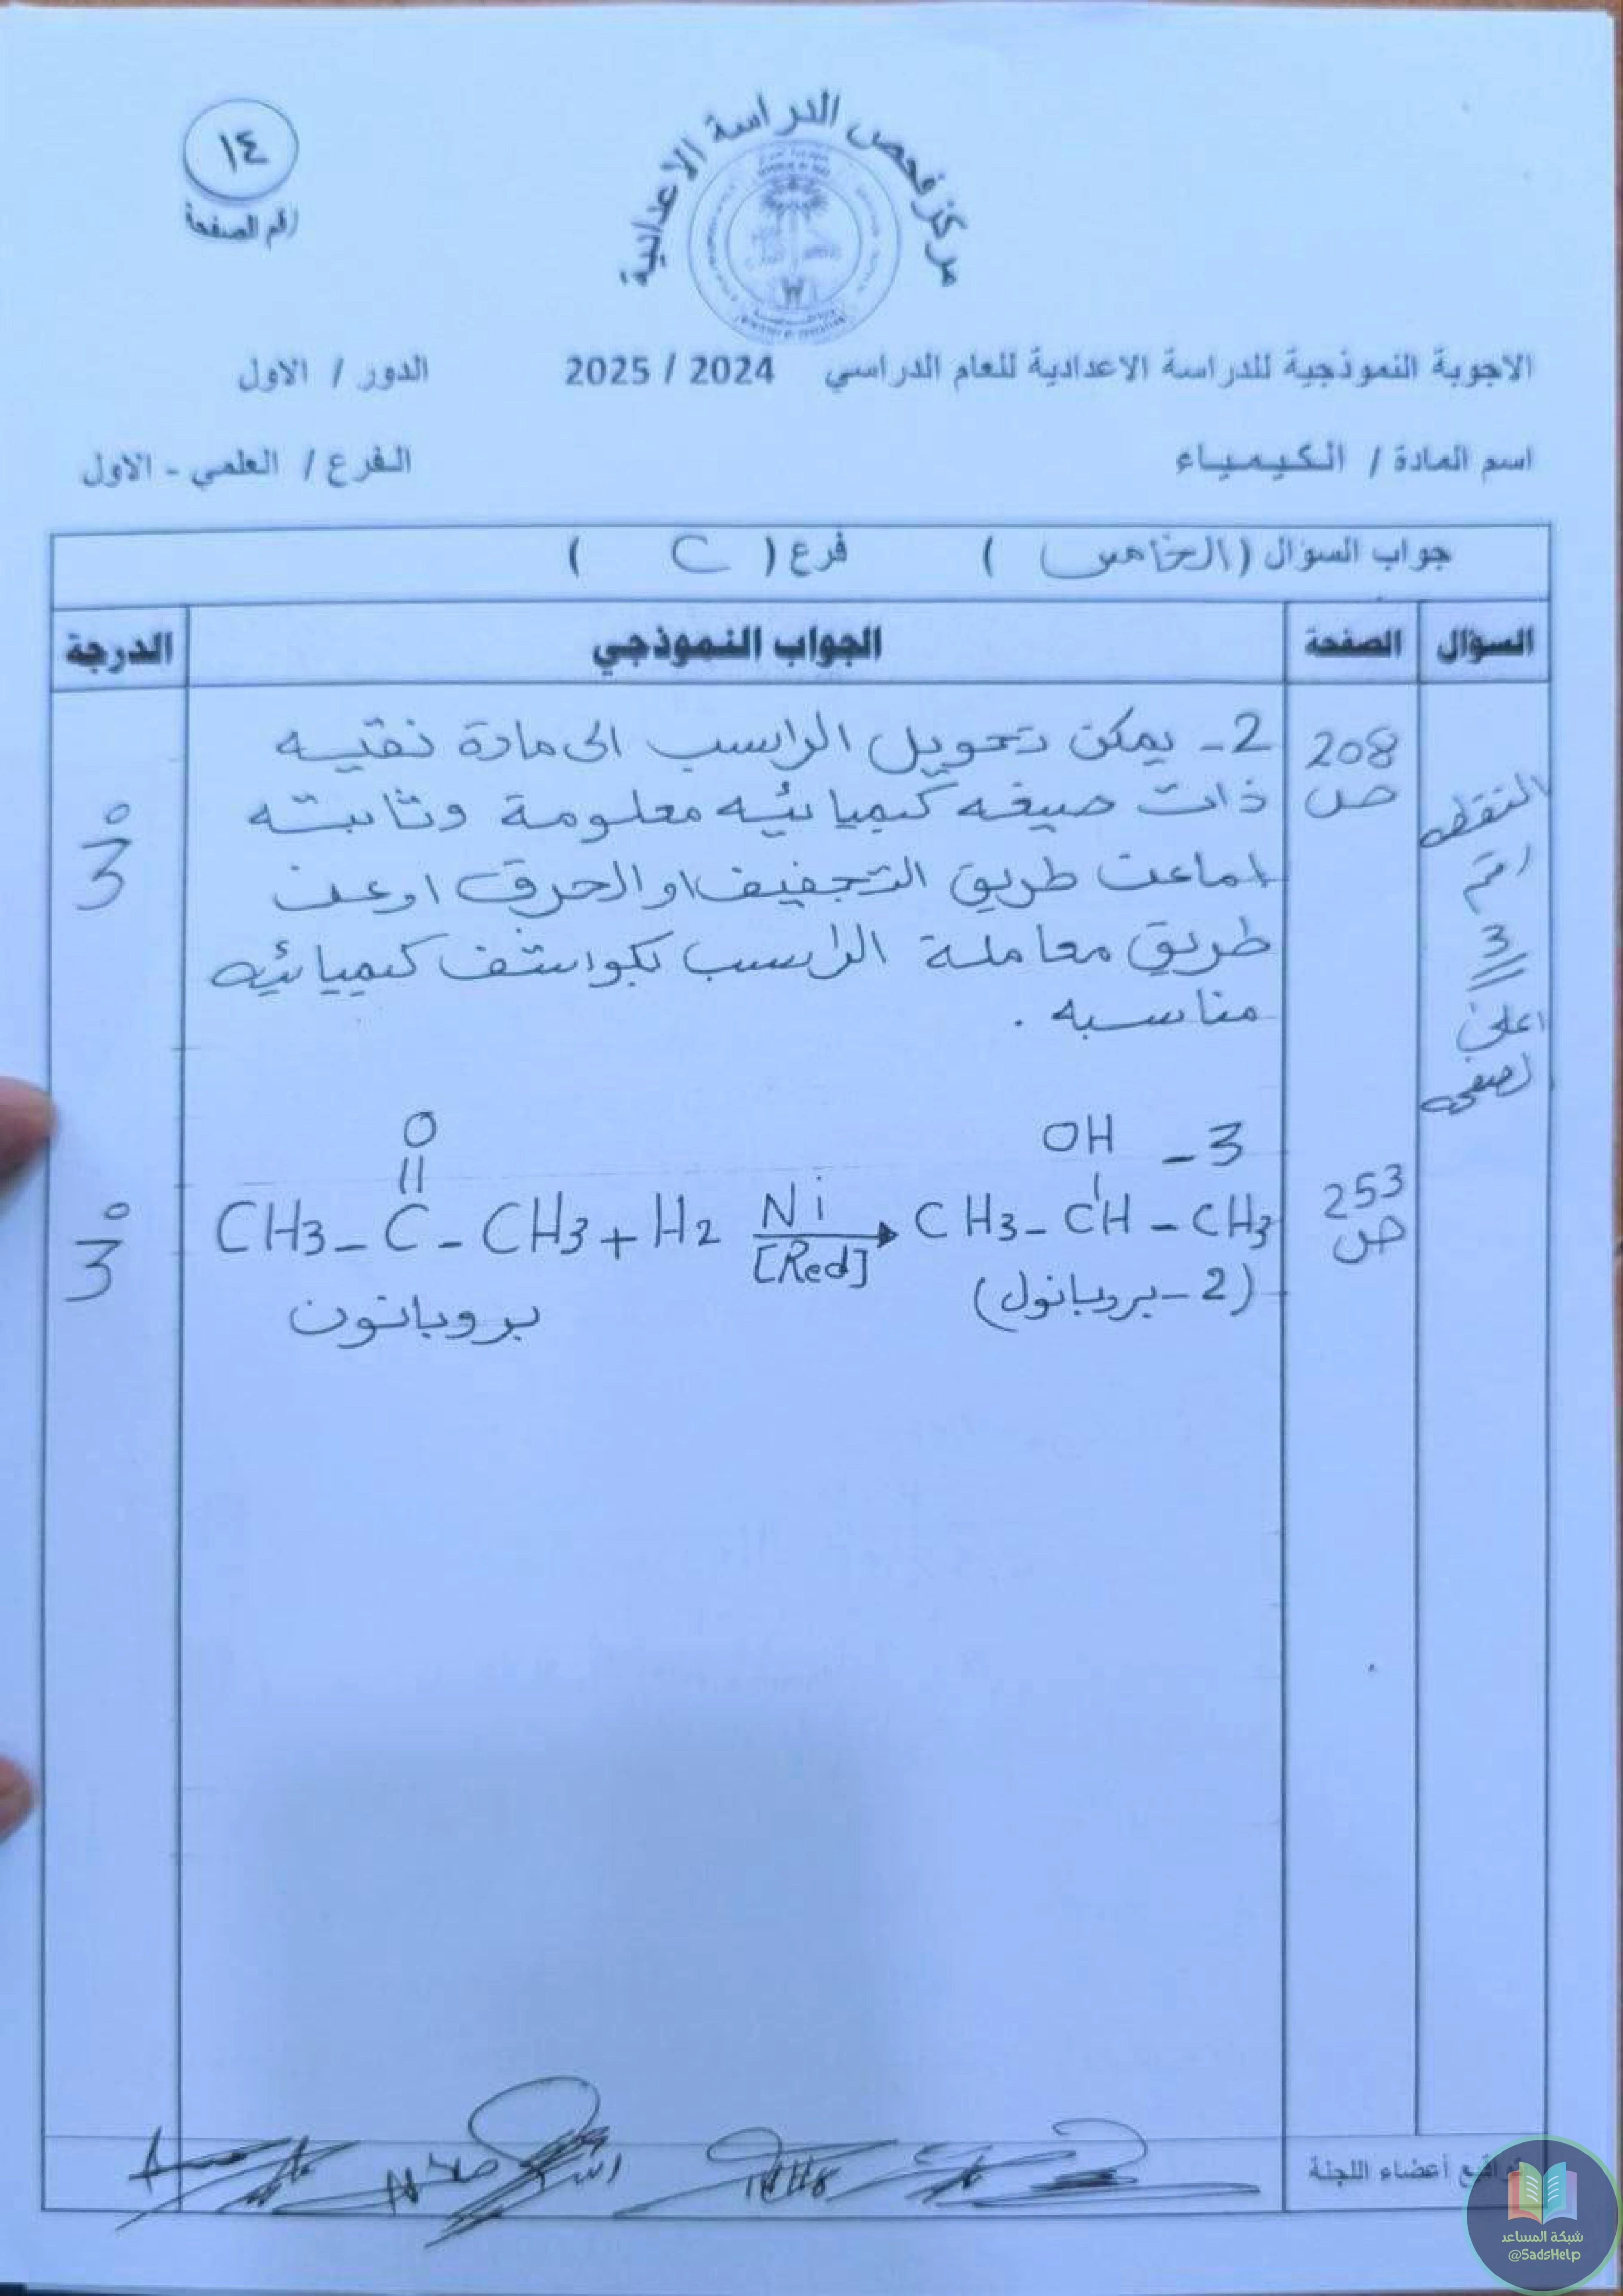 ١٤
رقم الصفحة
مركز فحص الدراسة الاعدادية
الاجوبة النموذجية للدراسة الاعدادية للعام الدراسي 2024 / 2025 الدور / الاول
اسم المادة / الكيمياء الفرع / العلمي - الاول
جواب السؤال (الخامس) فرع (C)
السؤال الصفحة الجواب النموذجي الدرجة
النقطه
رقم
3
اعلى
208
ص
2- يمكن تحويل الراسب الى مادة نقيه
ذات صيغه كيميائيه معلومة وثابته
اما عن طريق التجفيف او الحرق او عن
طريق معاملة الراسب بكواشف كيميائيه
مناسبه .
3°
253
ص
3-
O OH
|| |
CH3-C-CH3+H2 Ni CH3-CH-CH3
[Red]
بروبانون (2-بروبانول)
3°
تواقيع أعضاء اللجنة
شبكة المساعد
@SadsHelp